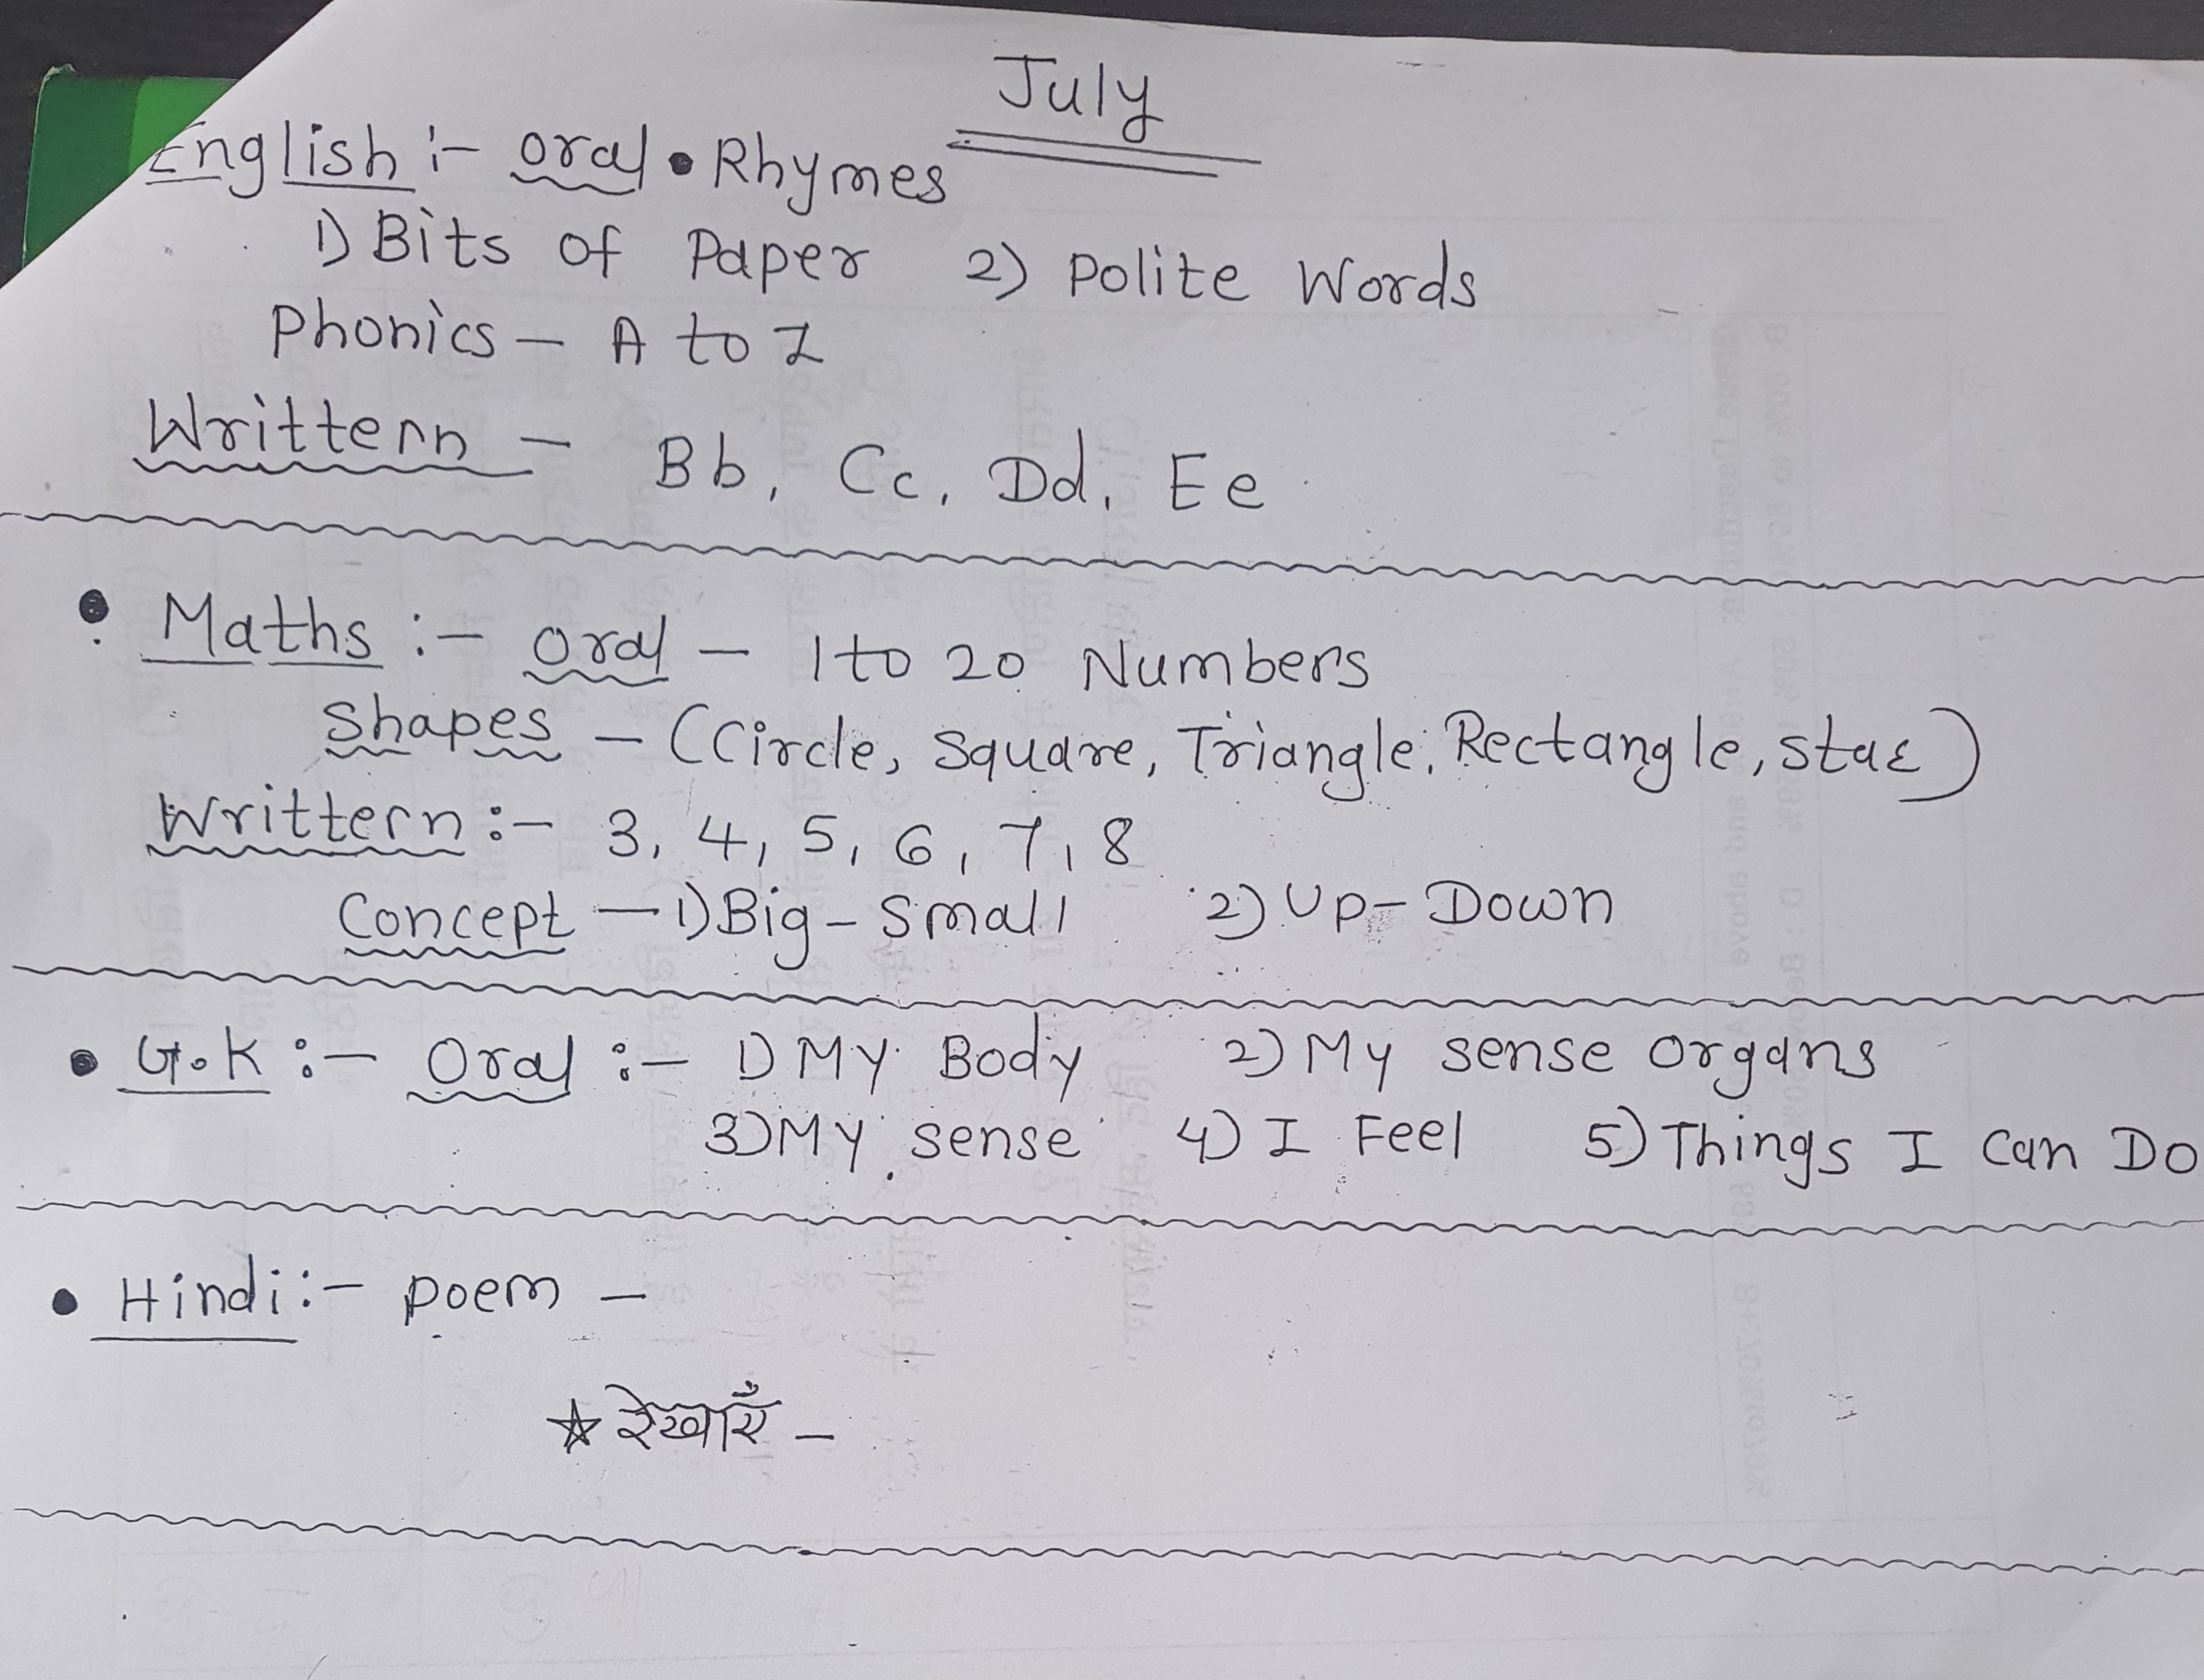 July
English :- Oral • Rhymes
1) Bits of Paper 2) Polite Words
Phonics - A to Z
Writtern - Bb, Cc, Dd, Ee
• Maths :- Oral - 1 to 20 Numbers
Shapes - (Circle, Square, Triangle, Rectangle, Star)
Writtern :- 3, 4, 5, 6, 7, 8
Concept - 1) Big - Small 2) Up - Down
• G.K :- Oral :- 1) My Body 2) My sense organs
3) My sense 4) I Feel 5) Things I Can Do
• Hindi :- Poem -
☆ रेखाएँ -